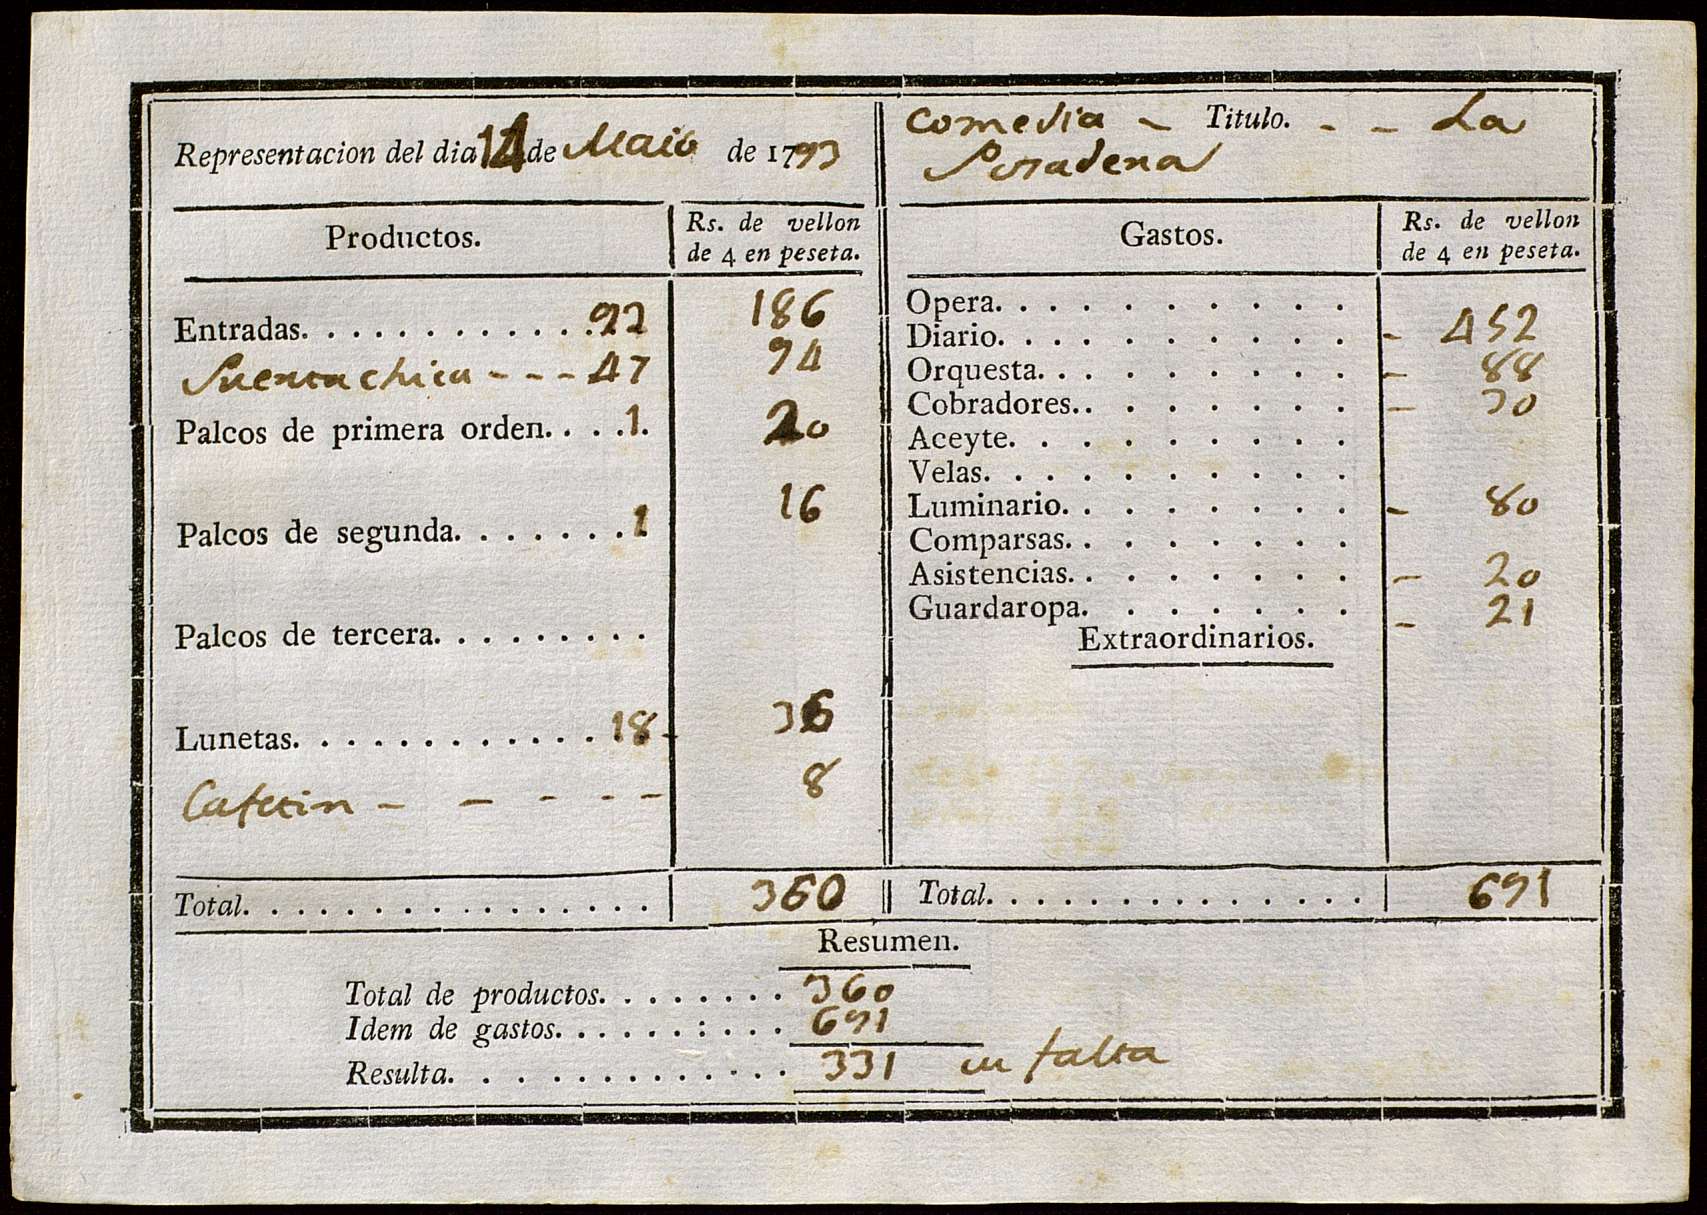 Representacion del dia 14 de Maio de 1793
Comedia - Titulo. - - La
Posadera
Productos.
Rs. de vellon
de 4 en peseta.
Entradas. . . . . . . . . . . . . 93 186
Puerta chica - - - 47 94
Palcos de primera orden. . . . 1. 20
Palcos de segunda. . . . . . . 1 16
Palcos de tercera. . . . . . . . .
Lunetas. . . . . . . . . . . . 18 - 36
Cafetin - - - - - 8
Total. . . . . . . . . . . . . . . . 360
Gastos.
Rs. de vellon
de 4 en peseta.
Opera. . . . . . . . . .
Diario. . . . . . . . . . - 452
Orquesta. . . . . . . . . - 88
Cobradores. . . . . . . . - 30
Aceyte. . . . . . . . .
Velas. . . . . . . . . .
Luminario. . . . . . . . - 80
Comparsas. . . . . . . .
Asistencias. . . . . . . . - 20
Guardaropa. . . . . . . - 21
Extraordinarios.
Total. . . . . . . . . . . . . . . 691
Resumen.
Total de productos. . . . . . . . 360
Idem de gastos. . . . . . : . . . 691
Resulta. . . . . . . . . . . . . 331 en falta